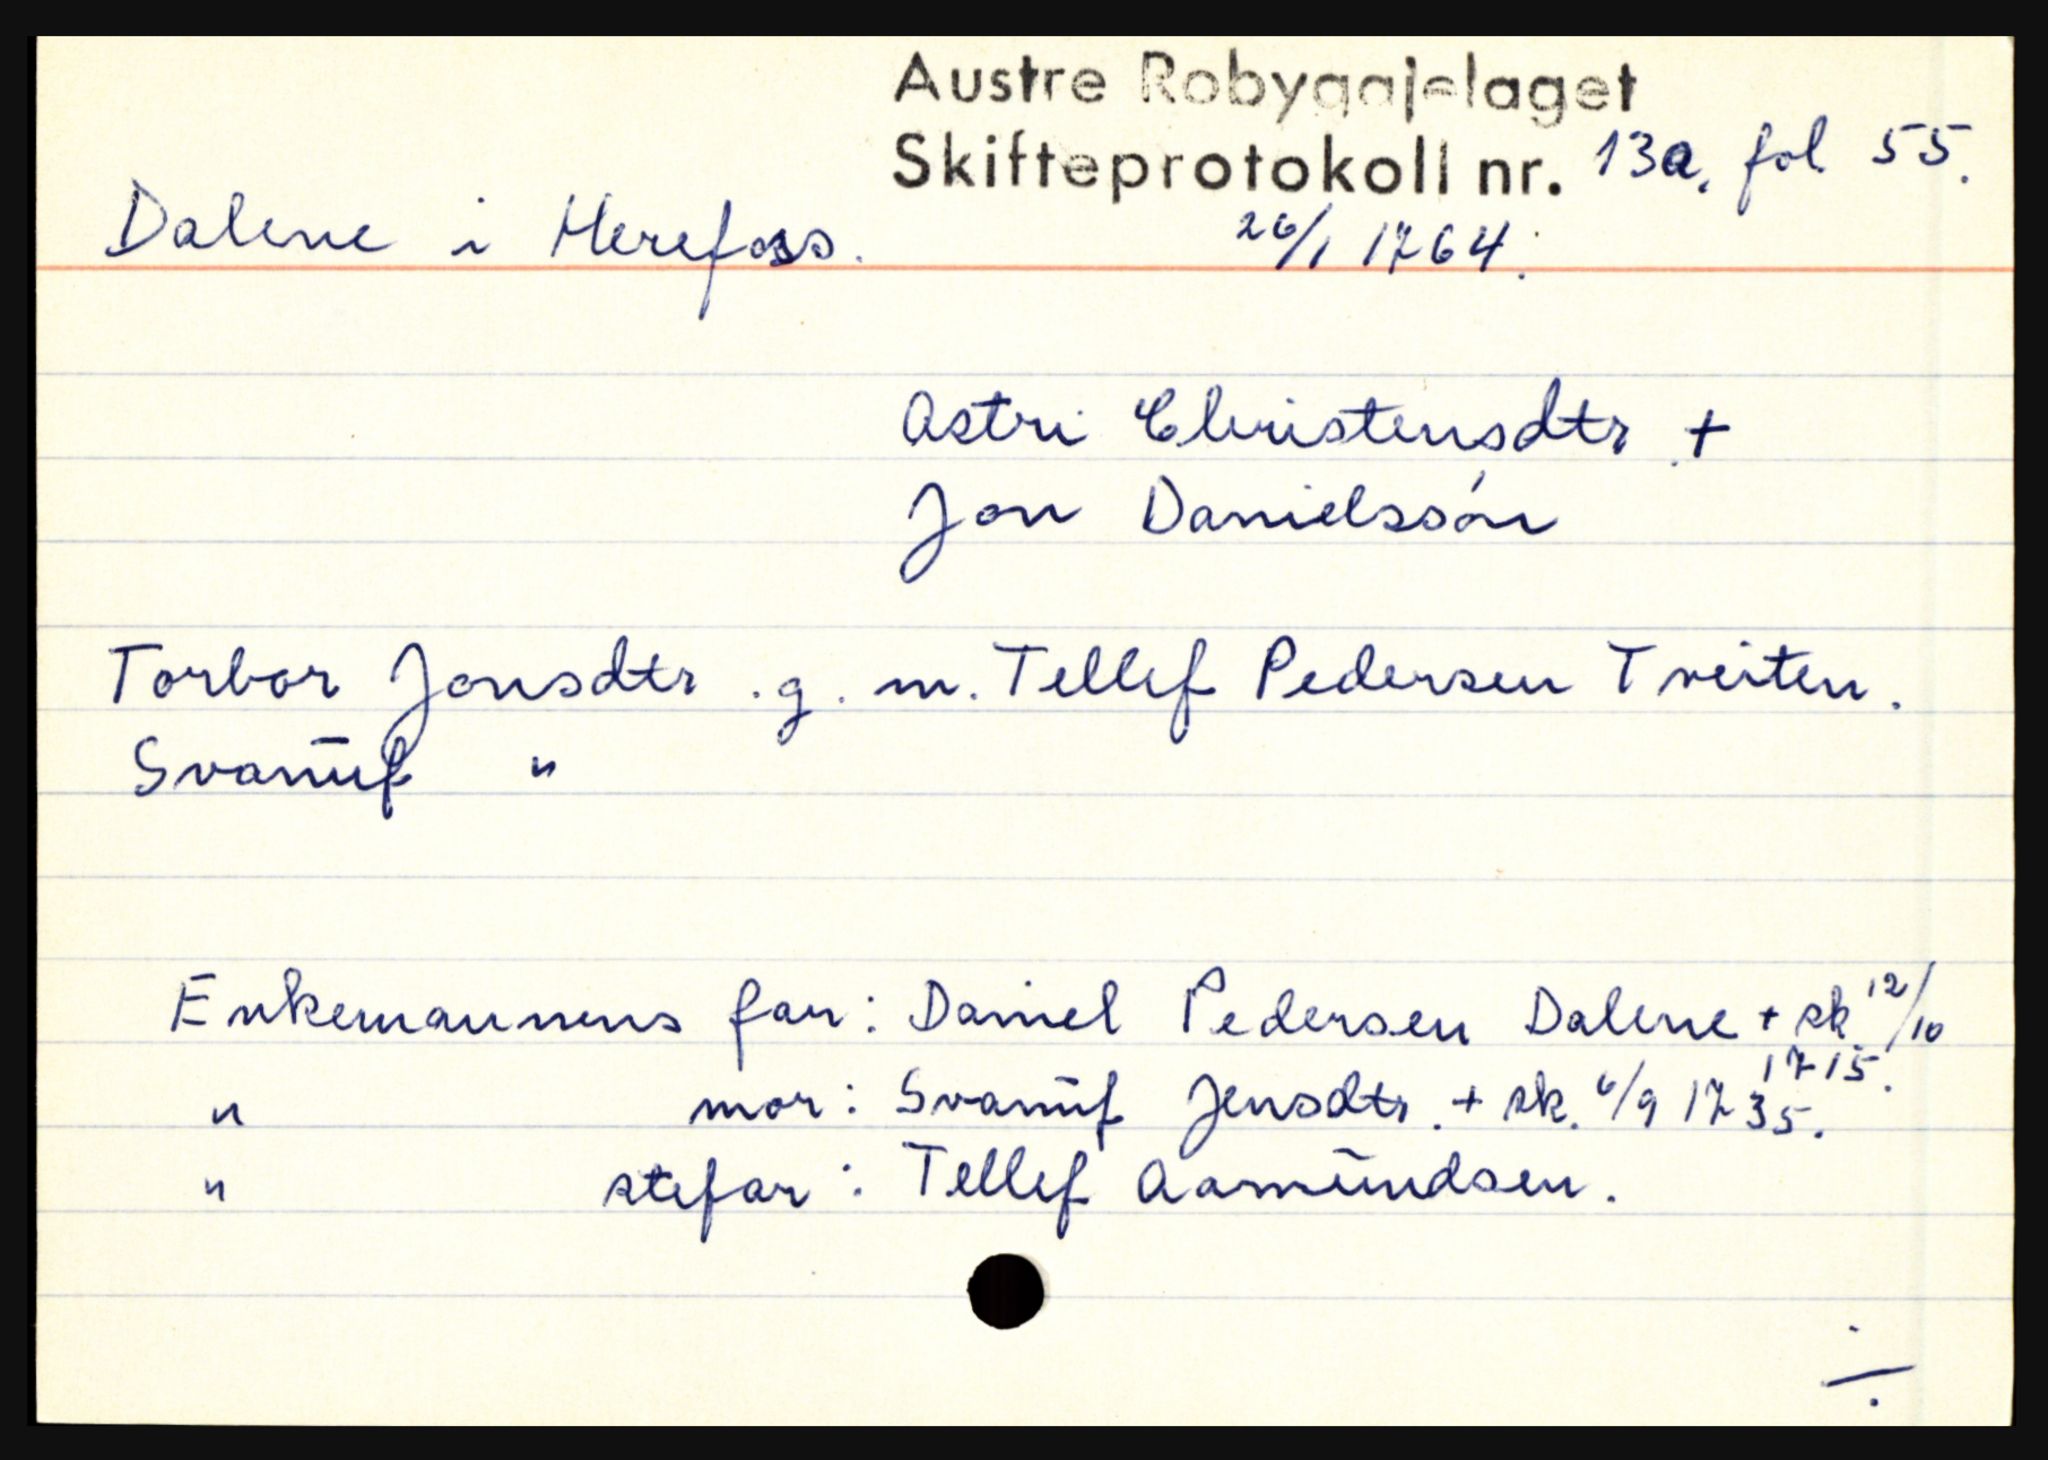 Austre Robygdelaget
Skifteprotokoll nr. 13a, fol 55.
Dalene i Herefoss. 26/1 1764.
Astri Christensdtr +
Jon Danielssón
Torbor Jonsdtr . g. m. Tellef Pedersen Tveiten.
Svanŭf "
Enkemannens far: Daniel Pedersen Dalene + sk 12/10
1715.
" mor: Svanŭf Jensdtr. + sk. 6/9 1735.
" stefar: Tellef Aamŭndsen.
÷